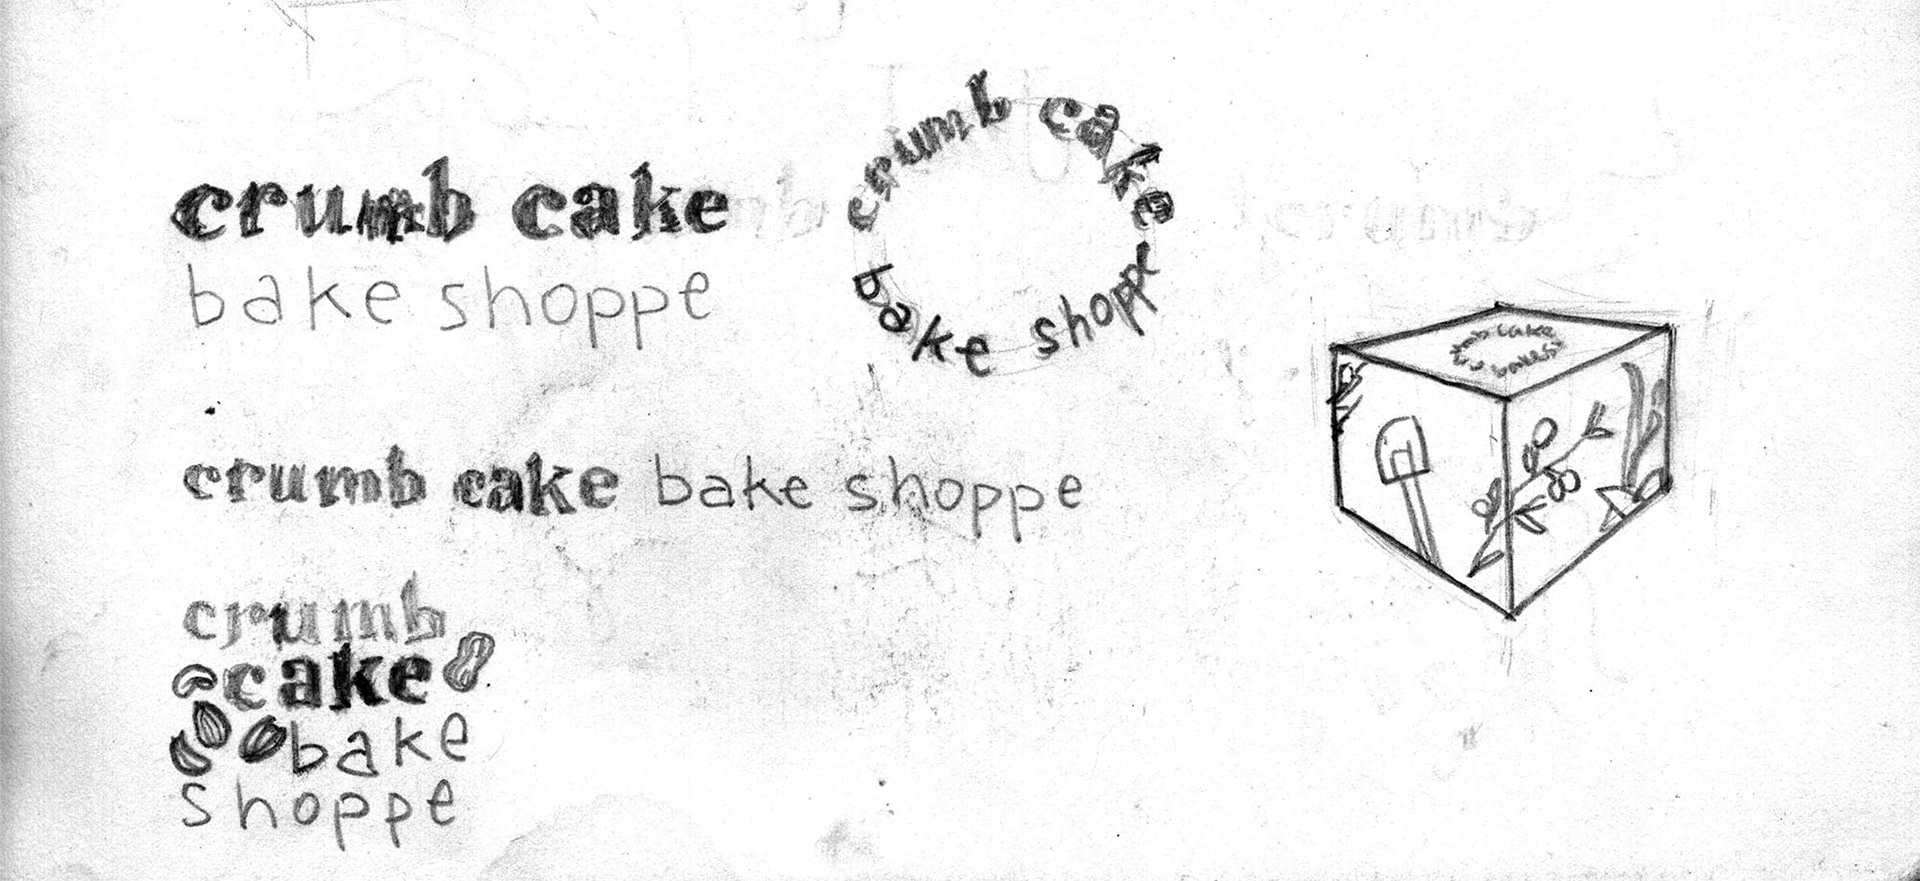 crumb cake
bake shoppe
crumb cake
bake shoppe
crumb cake bake shoppe
crumb
cake
bake
shoppe
crumb